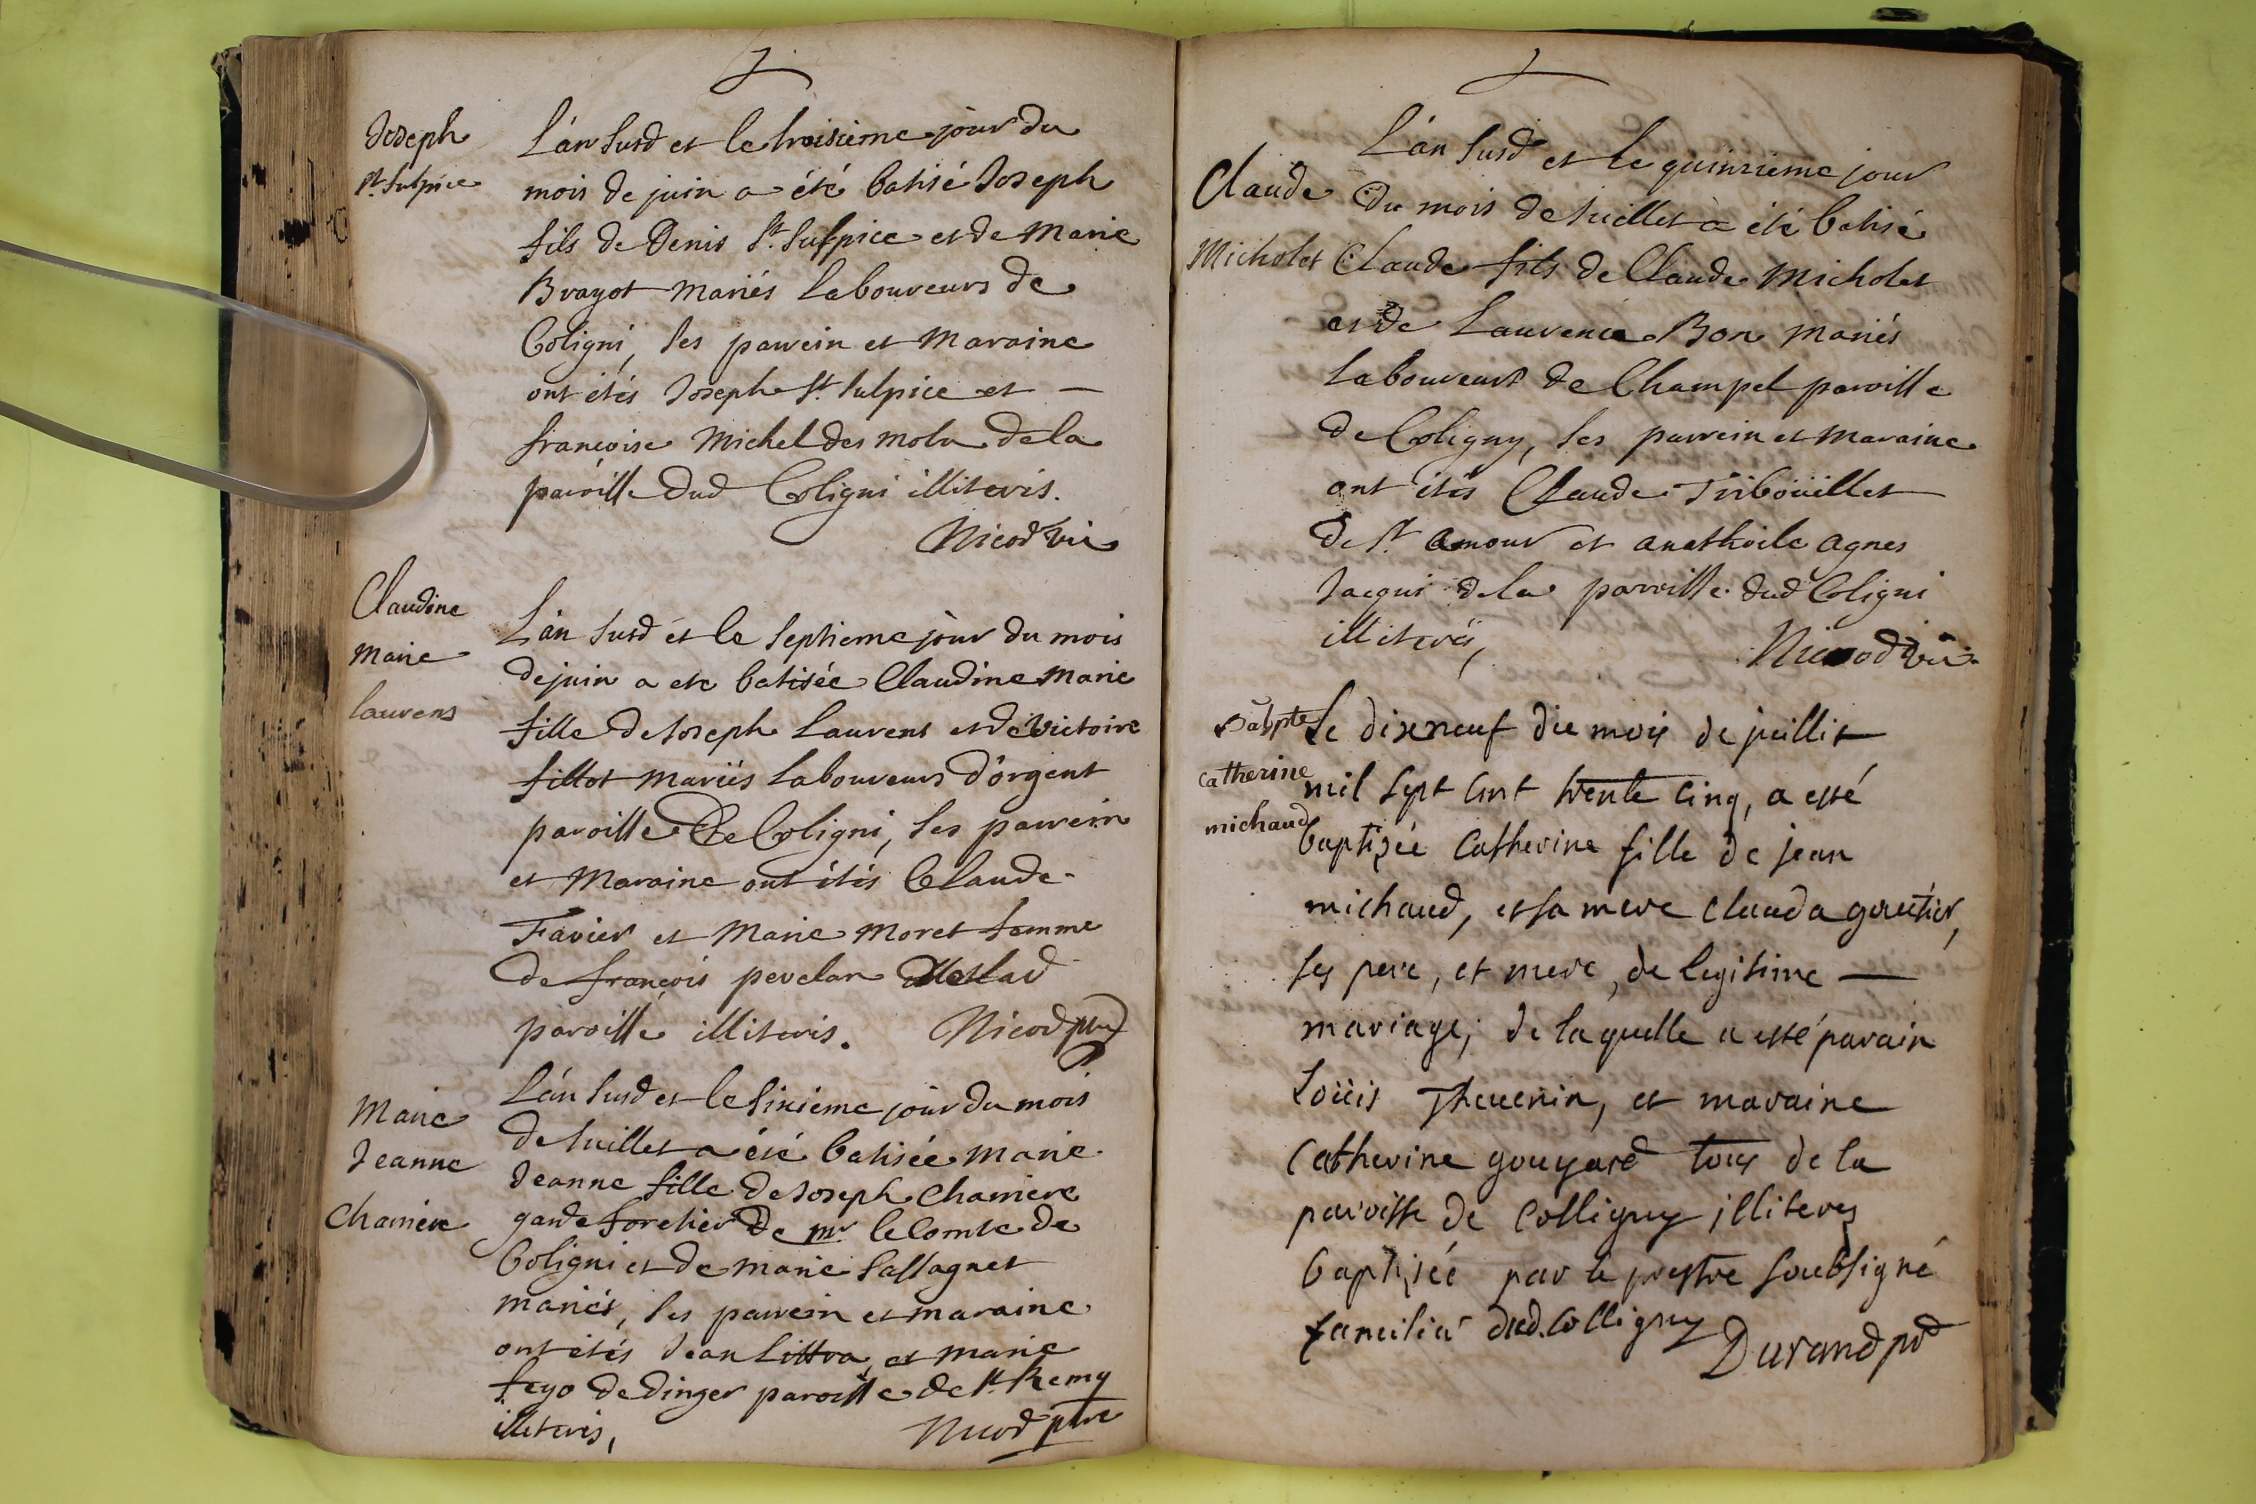 Joseph
St. Sulpice
L'an susd et le troisieme jour du
mois de juin a été batisé Joseph
fils de Denis St. Sulpice et de Marie
Brayot mariés laboureurs de
Coligni, ses parrein et maraine
ont étés Joseph St. Sulpice et —
francoise Michel des mola de la
paroisse dud Coligni illiterés.
Nicod vic
Claudine
marie
laurens
L'an susd et le septieme jour du mois
de juin a ete batisée Claudine marie
fille de Joseph Laurent et de victoire
fillot mariés laboureurs d'orgent
paroisse de Coligni, ses parrein
et maraine ont étés Claude
Favier et Marie moret femme
de françois pevelan de lad
paroisse illiterés. Nicod ptre
Marie
Jeanne
Charriere
L'an susd et le sixieme jour du mois
de Juillet a été batisée marie
Jeanne fille de Joseph Charriere
garde foretier de mr. le Comte de
Coligni et de marie Sassagnet
mariés, ses parrein et maraine
ont étés Jean Littra, et marie
feyo de dinger paroisse de St. Remy
illiterés,
Nicod ptre
Claude
Micholet
L'an susd et le quinzieme jour
du mois de Juillet a été batisé
Claude fils de Claude Micholet
et de Laurence Bon mariés
laboureurs de Champel paroisse
de Coligny, ses parrein et maraine
ont étés Claude Tribouillet
de St. amour et anathoile agnes
Jacqui de la paroisse dud Coligni
illiterés, Nicod vic.
Bapte
catherine
michaud
Le dixneuf du mois de juillit
mil sept cent trente cinq, a esté
baptizée Catherine fille de jean
michaud, et sa mere clauda gautier,
ses pere, et mere, de legitime —
mariage; de laquelle a esté parain
Loüis Thevenin, et maraine
Catherine gouyard tous de la
paroisse de Colligny illiteres
baptizée par le prestre soubsigné
familiér dud. Colligny
Durand ptre